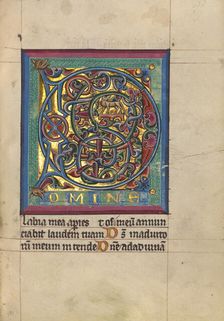 DOMINE
labia mea apies & os meū annun
ciabit laudem tuam Ds in adiuto
riū meum in tende Dne ad adiuuan